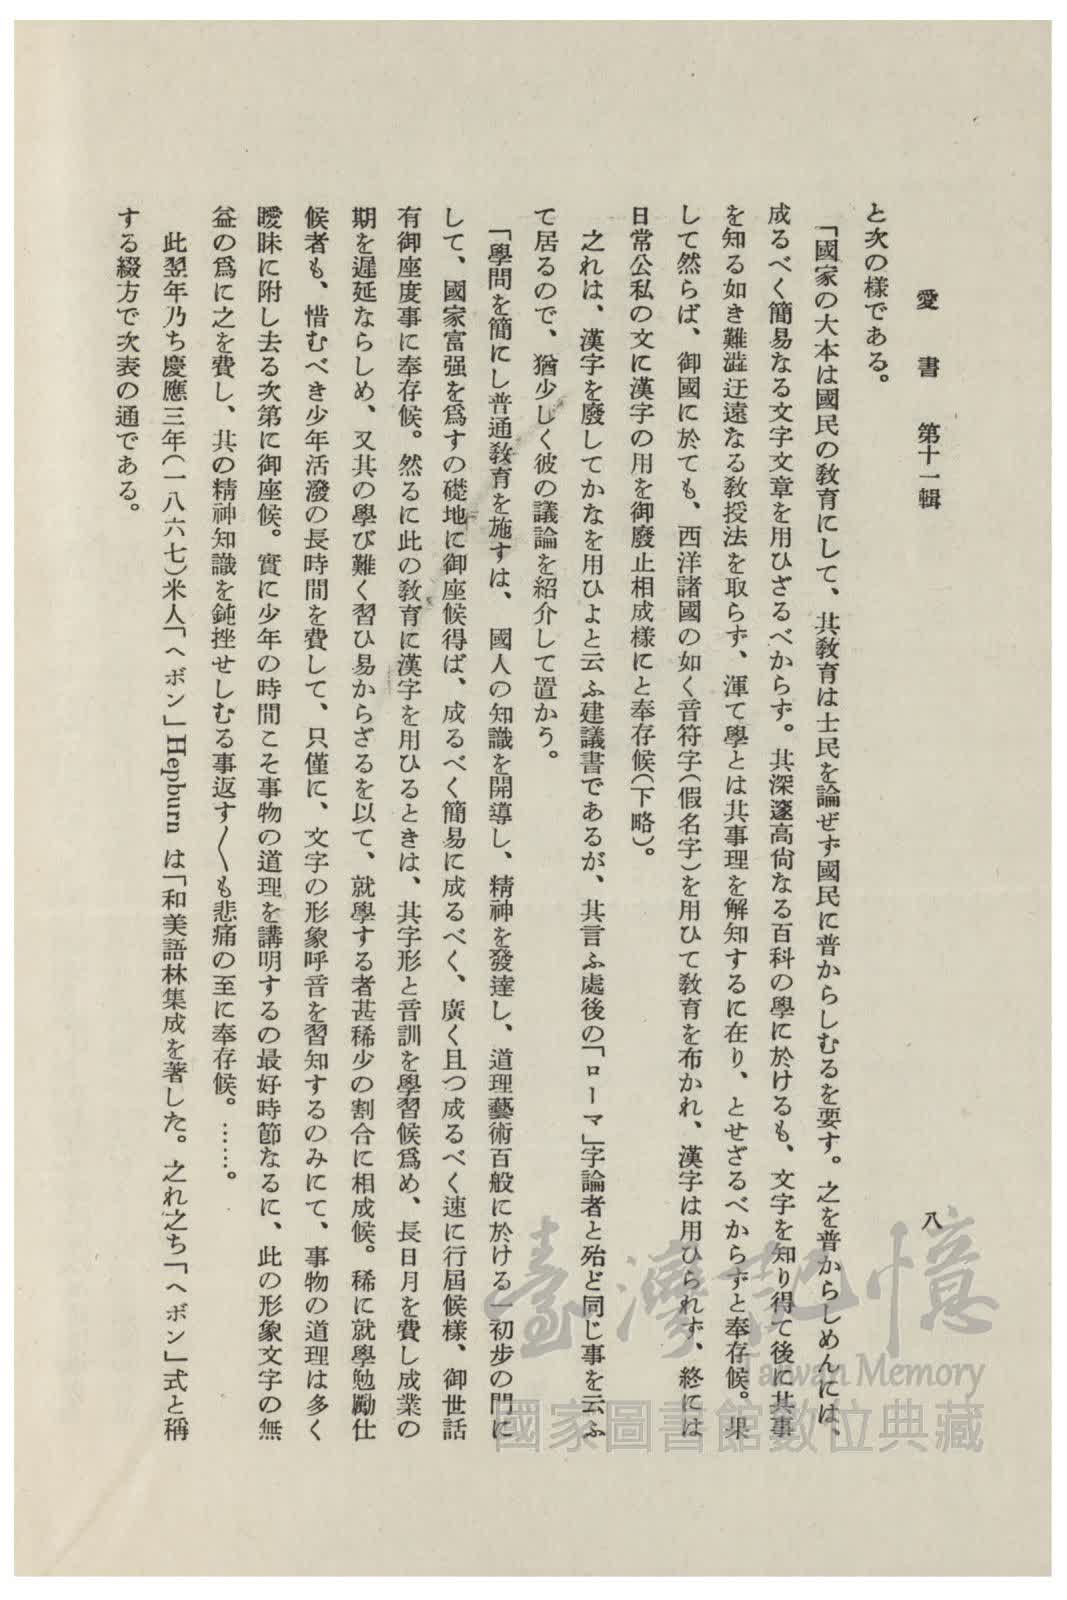 愛書　第十一輯
八
と次の様である。
「國家の大本は國民の敎育にして、其敎育は士民を論ぜず國民に普からしむるを要す。之を普からしめんには、
成るべく簡易なる文字文章を用ひざるべからず。其深邃高尙なる百科の學に於けるも、文字を知り得て後に其事
を知る如き難澁迂遠なる敎授法を取らず、渾て學とは其事理を解知するに在り、とせざるべからずと奉存候。果
して然らば、御國に於ても、西洋諸國の如く音符字(假名字)を用ひて敎育を布かれ、漢字は用ひられず、終には
日常公私の文に漢字の用を御廢止相成樣にと奉存候(下略)。
之れは、漢字を廢してかなを用ひよと云ふ建議書であるが、其言ふ處後の「ローマ」字論者と殆ど同じ事を云ふ
て居るので、猶少しく彼の議論を紹介して置かう。
「學問を簡にし普通敎育を施すは、國人の知識を開導し、精神を發達し、道理藝術百般に於ける一初步の門に
して、國家富强を爲すの礎地に御座候得ば、成るべく簡易に成るべく、廣く且つ成るべく速に行屆候樣、御世話
有御座度事に奉存候。然るに此の敎育に漢字を用ひるときは、其字形と音訓を學習候爲め、長日月を費し成業の
期を遲延ならしめ、又其の學び難く習ひ易からざるを以て、就學する者甚稀少の割合に相成候。稀に就學勉勵仕
候者も、惜むべき少年活潑の長時間を費して、只僅に、文字の形象呼音を習知するのみにて、事物の道理は多く
曖昧に附し去る次第に御座候。實に少年の時間こそ事物の道理を講明するの最好時節なるに、此の形象文字の無
益の爲に之を費し、其の精神知識を鈍挫せしむる事返す〱も悲痛の至に奉存候。……。
此翌年乃ち慶應三年(一八六七)米人「ヘボン」Hepburn は「和美語林集成を著した。之れ之ち「ヘボン」式と稱
する綴方で次表の通である。
臺灣記憶
Taiwan Memory
國家圖書館數位典藏